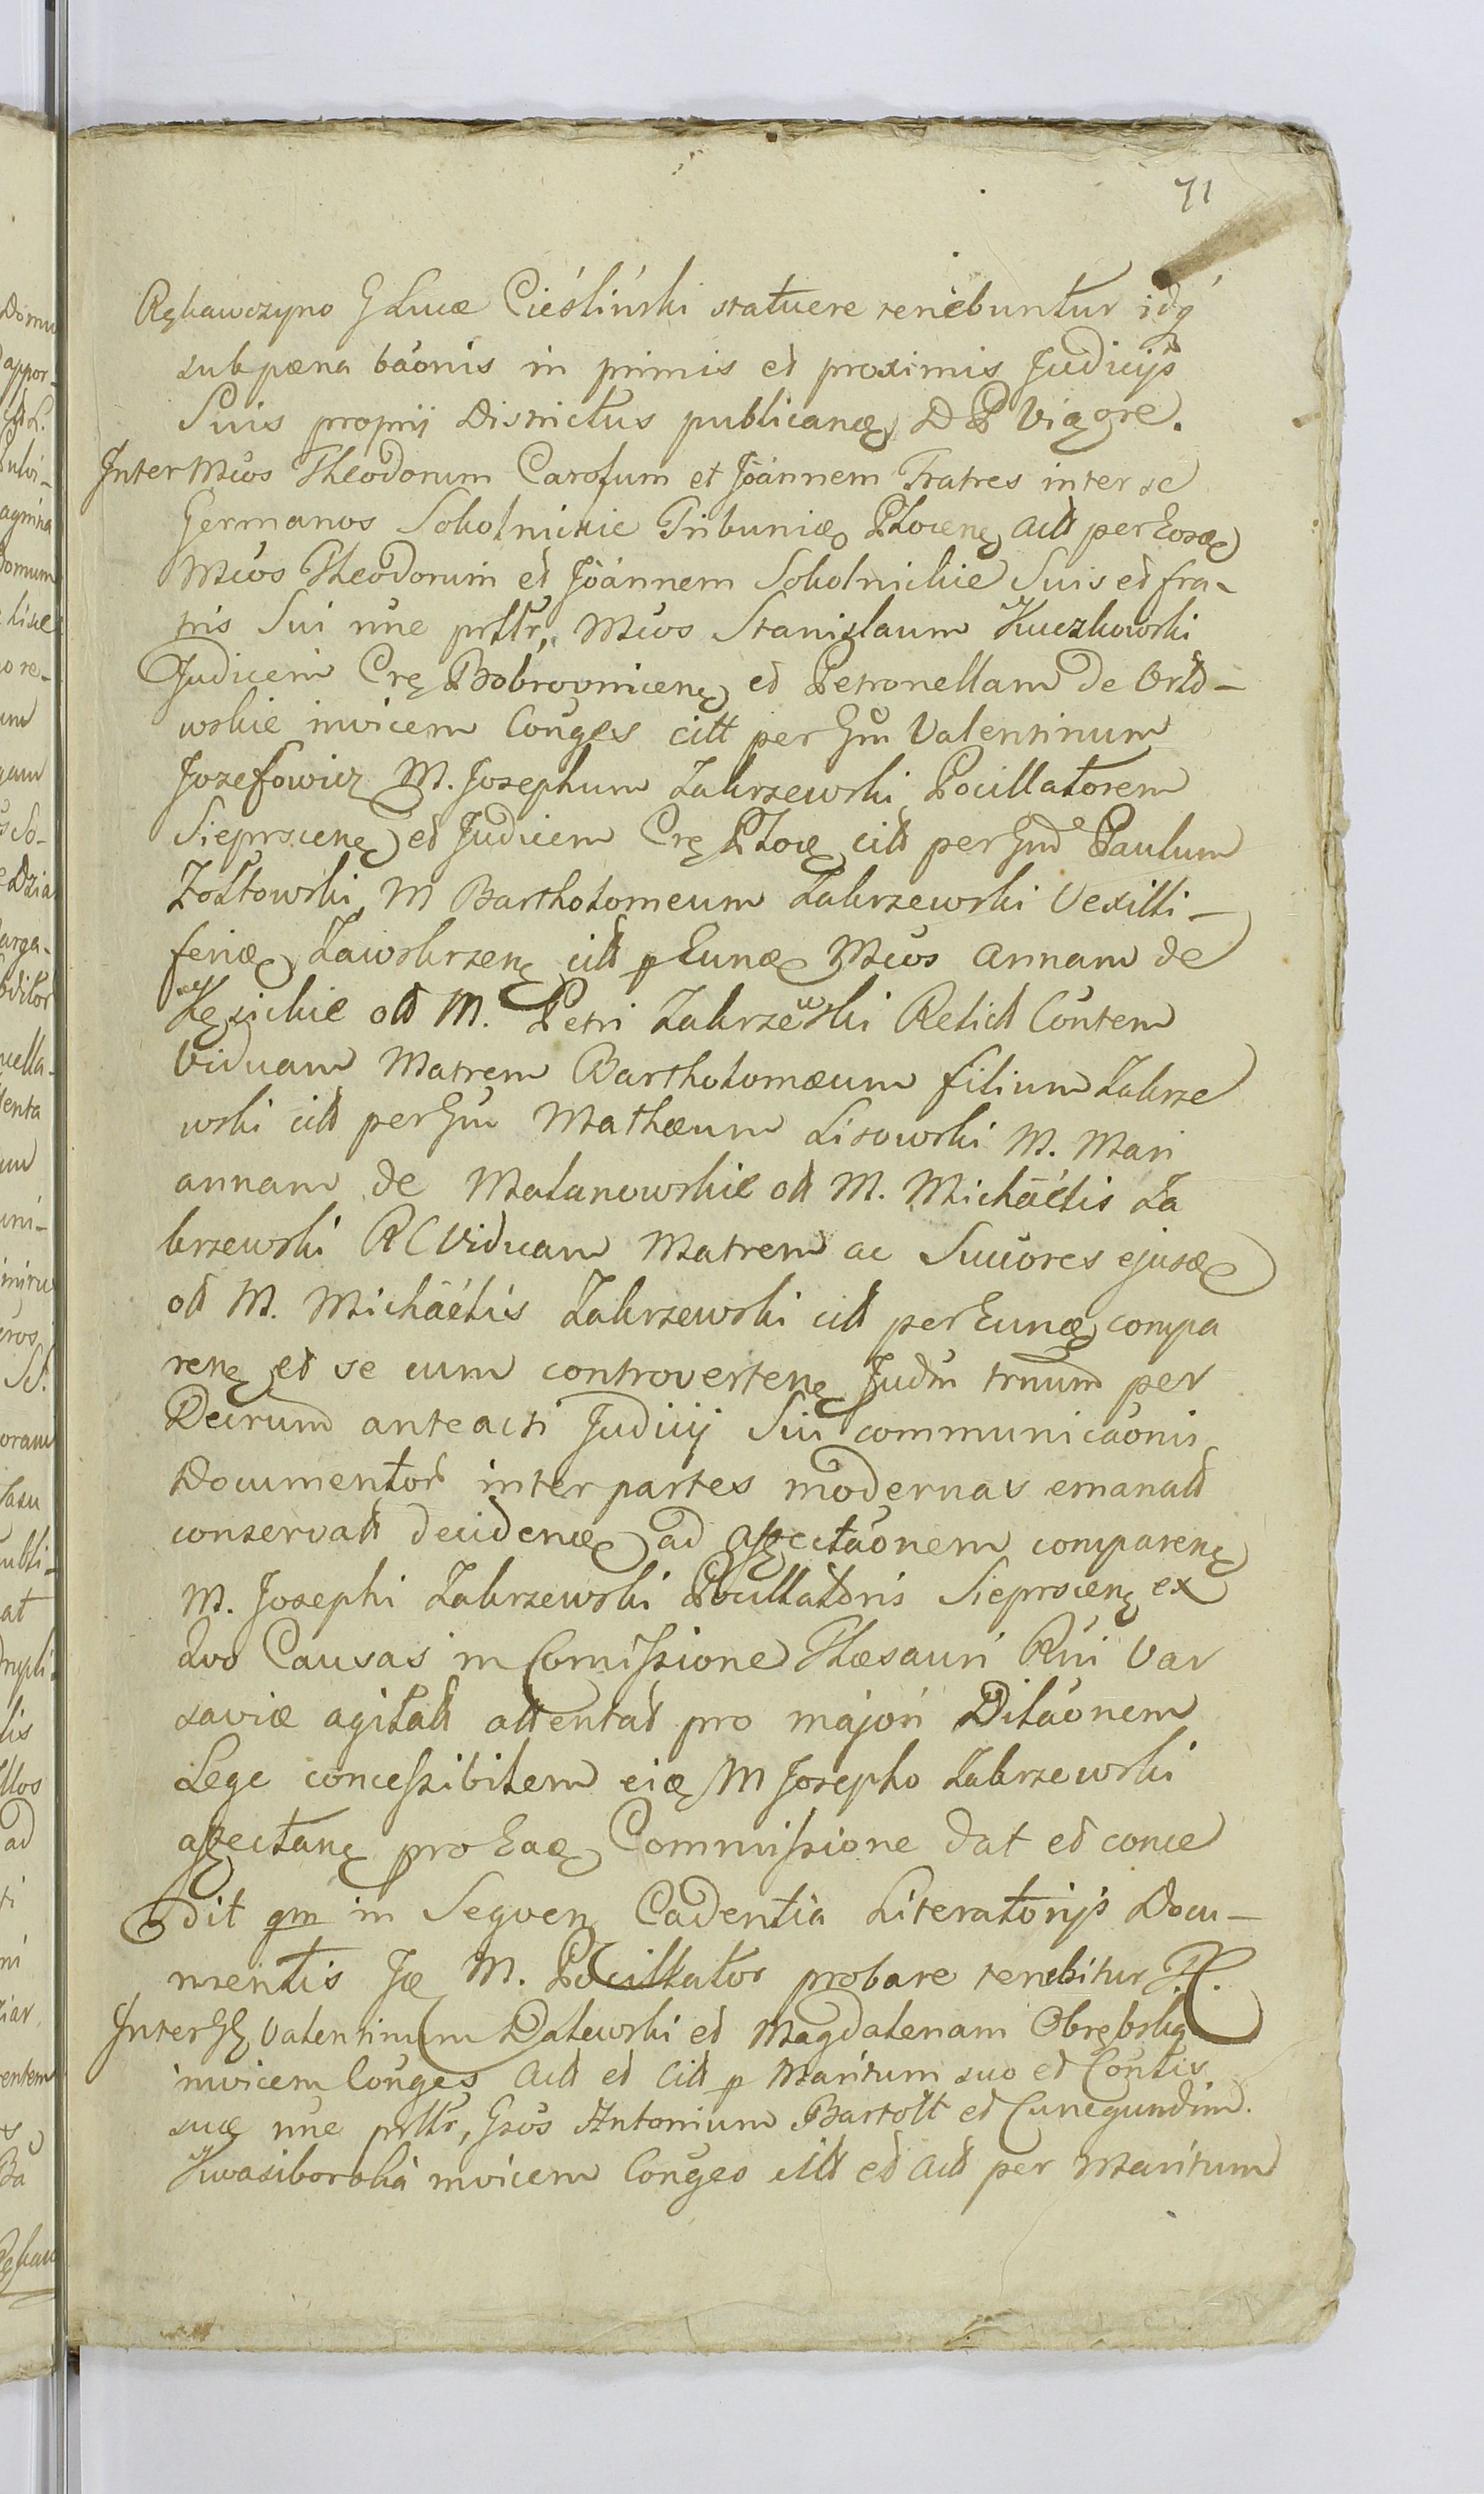 71
Rękawczyno G Lucæ Cieśliński statuere tenebuntur idq́
sub pæna báonis in primis et proximis Judicijs
Suis proprij Districtus publicanę D P Vigore.
Inter Mcos Theodorum Carolum et Joánnem Fratres inter se
Germanos Sokolnickie Tribunię Płocenę Actt per Eosdę
Mcos Theodorum et Joánnem Sokolnickie Suis et fra-
tris Sui nñe prttr, Mcos Stanislaum Kuczkowski
Judicem Crę Bobrovnicenę et Petronellam de Orło-
wskie invicem Conges citt per Gm Valentinum
Jozefowicz M. Josephum Zakrzewski Pocillatorem
Sieprscenę et Judicem Crę Płocę citt per Gnd Paulum
Żołtowski M Bartholomeum Zakrzewski Vexilli-
ferię Zawskrzenę citt p Eundę Mcos Annam de
Kęsickie ott M. Petri Zakrzewski Relictt Contem
Viduam Matrem Bartholomæum filium Zakrze
wski citt per Gm Mathæum Lisowski M. Mari
annam de Malanowskie ott M. Michäélis Za
krzewski RC Viduam Matrem ac Succores ejusdę
ott M. Michäélis Zakrzewski citt per Eundę compa
renę et se cum controvertenę Judm trnum per
Decrum anteacti Judicij Sui communicáonis
Documentor inter partes modernas emanatt
conservatt decidendę ad affectáonem comparenę
M. Josephi Zakrzewski Pocillatoris Sieprscenę ex
quo Causas in Comissione Thesauri Rni Var
saviæ agitatt attentat pro majori Diláonem
Lege concessibilem eidę M Josepho Zakrzewski
affectanę pro Eadę Commissione dat et conce
dit qm in Seqven Cadentia Literatorijs Docu-
mentis Idę M. Pocillator probare tenebitur P. V.
Inter GG Valentinum Dalewski et Magdalenam Obrębską
invicem Conges Actt et Citt p Maritum suo et Contis
suæ nñe prttr, Gsos Antonium Bartołt et Cunegundim.
Kwasiborska invicem Conges citt et Actt per Maritum